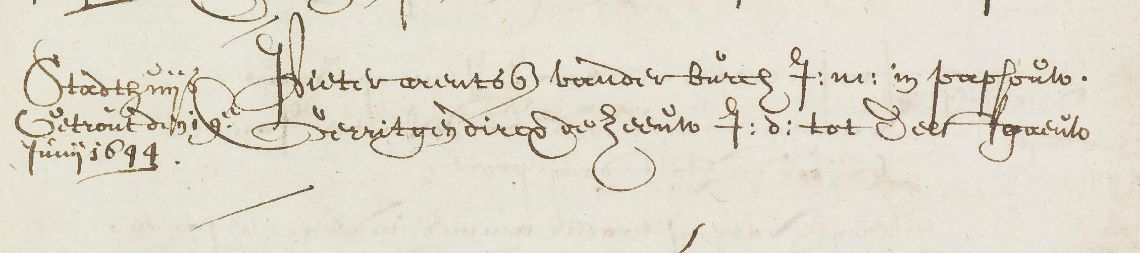 Stadthuijs
Getrout den 19en
Junij 1644.
Pieter arentsz vander burch J: m: in papsouw.
Gerritgen dircx de Zeeuw J: d: tot Delfsgaeuw